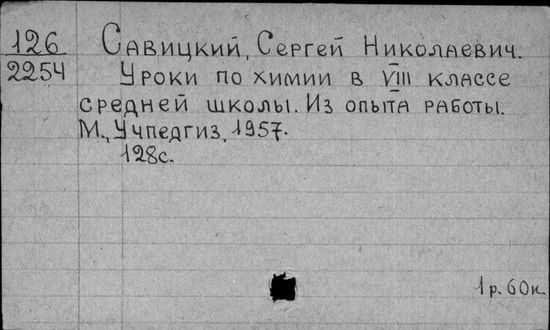 126
2254
Савицкий, Сергей Николаевич.
Уроки по химии в VIII классе
средней школы. Из опыта работы.
М., Учпедгиз, 1957.
128с.
1 р. 60 к.